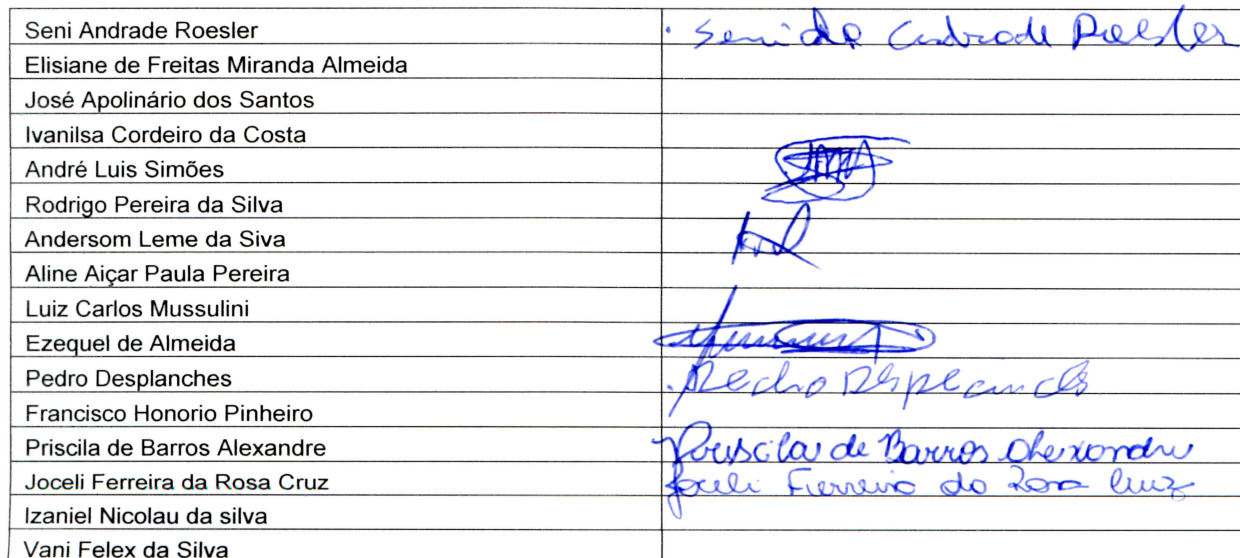 Seni Andrade Roesler . Seni de Andrade Roesler
Elisiane de Freitas Miranda Almeida
José Apolinário dos Santos
Ivanilsa Cordeiro da Costa
André Luis Simões
Rodrigo Pereira da Silva
Andersom Leme da Siva
Aline Aiçar Paula Pereira
Luiz Carlos Mussulini
Ezequel de Almeida
Pedro Desplanches . Pedro Desplanches
Francisco Honorio Pinheiro
Priscila de Barros Alexandre Priscila de Barros Alexandre
Joceli Ferreira da Rosa Cruz Joceli Ferreira da Rosa Cruz
Izaniel Nicolau da silva
Vani Felex da Silva